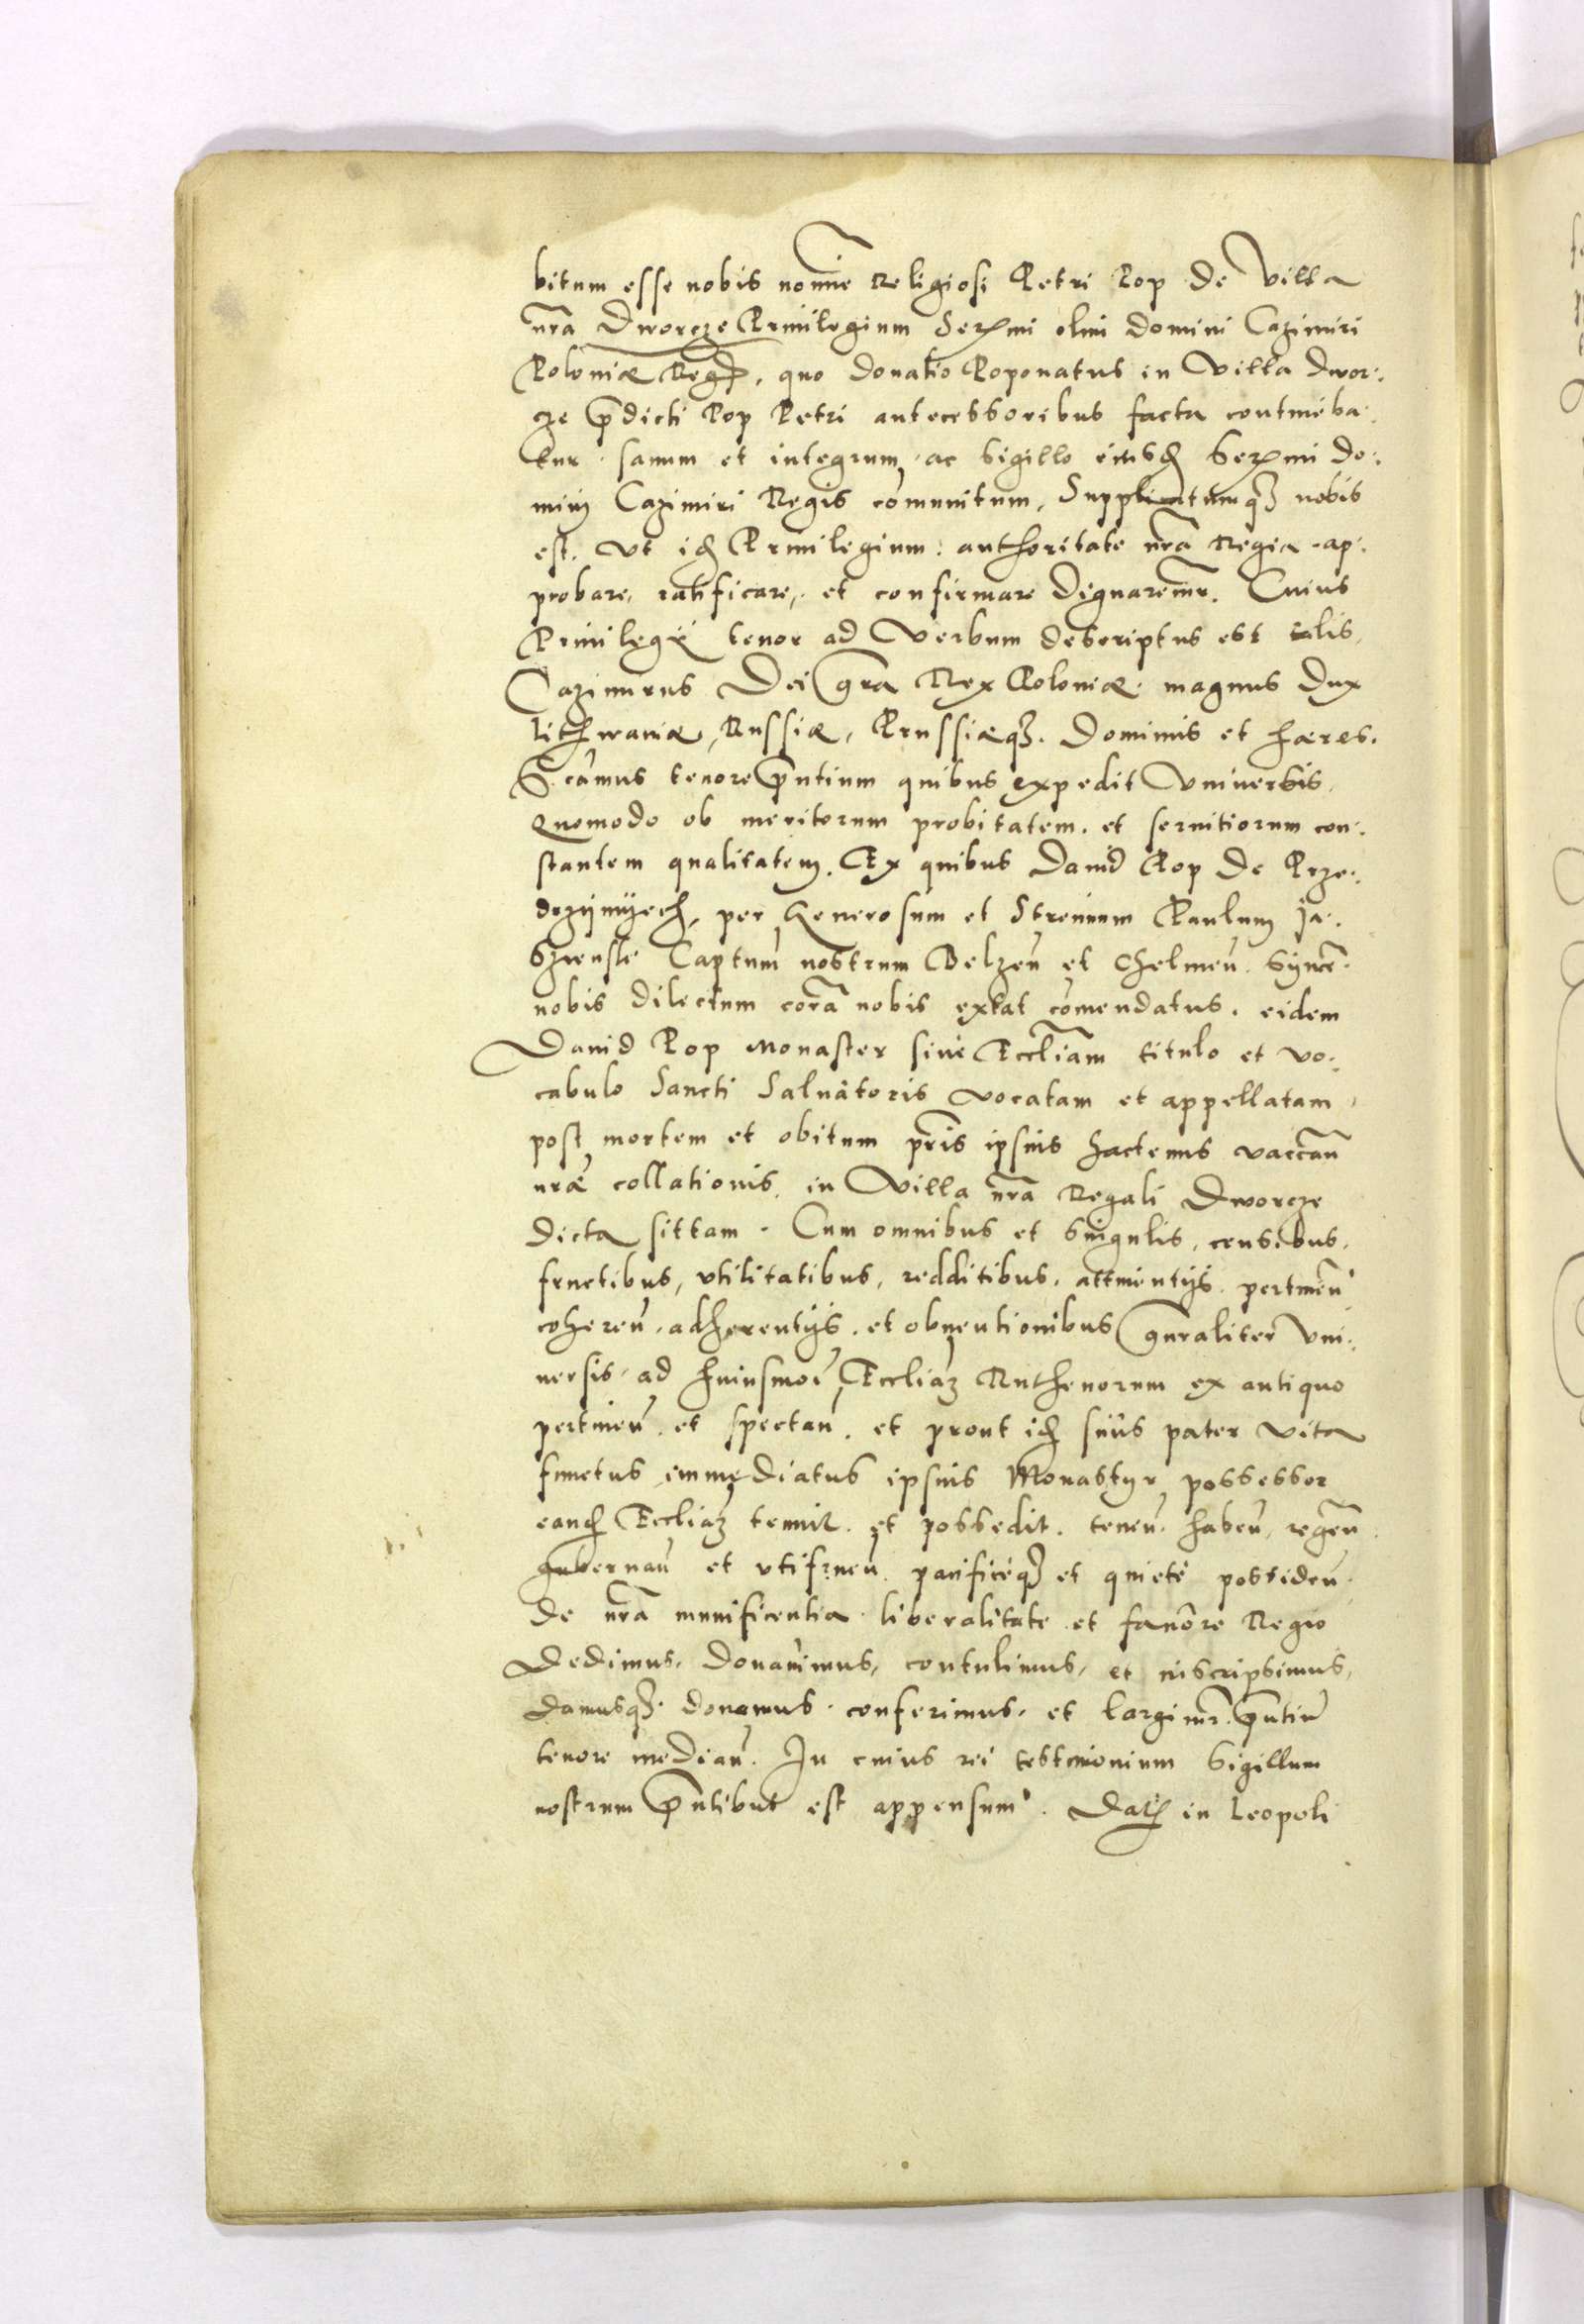 bitum esse nobis nomie Religiosi Petri Pop de Villa
nra Dworcze Privilegium Sermi olim domini Cazimiri
Poloniæ Regis, quo donatio Poponatus in Villa dwor:
cze pdicti Pop Petri antecessoribus facta contineba:
tur. sanum et integrum, ac sigillo eiusd Sermi do:
minj Cazimiri Regis comunitum, Supplicatumq nobis
est. Vt id Privilegium: authoritate nra Regia ap:
probare, ratificare, et confirmare dignaremr. Cuius
Privilegij tenor ad Verbum descriptus est talis,
Cazimirus Dei gra Rex Poloniæ. magnus dux
litthwaniæ, Russiæ, Prussiæq. Dominus et hæres.
S.camus tenore pntium quibus expedit Vniuersis.
Quomodo ob meritorum probitatem. et seruitiorum con:
stantem qualitatem. Ex quibus Dauid Pop de Prze:
drzijmijech, per Generosum et Strenuum Paulum Ja:
szienski Captum nostrum Belzen et Chelmen. synce
nobis dilectum cora nobis extat comendatus. eidem
Dauid Pop Monaster siue Eccliam titulo et vo:
cabulo Sancti Saluatoris vocatam et appellatam,
post mortem et obitum pris ipsius hactenus vaccan
nræ collationis, in Villa nra Regali Dworcze
dicta sittam. Cum omnibus et singulis, censibus,
fructibus, vtilitatibus, redditibus, attinentijs. pertinen
coheren. adherentijs. et obuentionibus gnraliter vni:
uersis. ad huiusmoi Eccliaz Ruthenorum ex antiquo
pertinen. et spectan. et prout id suus pater vita
functus immediatus ipsius Monastyr possessor
eand Eccliaz tenuit. et possedit. tenen. haben, regen.
gubernan et vtifruen. pacificeq et quiete possiden.
de nra munificentia liberalitate et fauore Regio
Dedimus, donauimus, contulimus, et inscripsimus,
damusq. donamus. conferimus, et largimr. pntiu
tenore median. In cuius rei testimonium Sigillum
nostrum pntibut est appensum. Dat in Leopoli